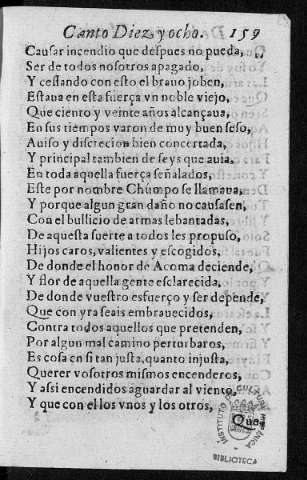 Canto Diez y ocho. 159
Causar incendio que despues no pueda,
Ser de todos nosotros apagado,
Y cessando con esto el brauo joben,
Estaua en esta fuerça vn noble viejo,
Que ciento y veinte años alcançaua,
En sus tiempos varon de muy buen seso,
Auiso y discrecion bien concertada,
Y principal tambien de seys que auia,
En toda aquella fuerça señalados,
Este por nombre Chumpo se llamaua,
Y porque algun gran daño no causasen,
Con el bullicio de armas lebantadas,
De aquesta suerte a todos les propuso,
Hijos caros, valientes y escogidos,
De donde el honor de Acoma deciende,
Y flor de aquella gente esclarecida,
De donde vuestro esfuerço y ser depende,
Que con yra seais embrauecidos,
Contra todos aquellos que pretenden,
Por algun mal camino perturbaros,
Es cosa en si tan justa, quanto injusta,
Querer vosotros mismos encenderos,
Y assi encendidos aguardar al viento,
Y que con el los vnos y los otros,
Que
INSTITUTO DE CULTURA HISPANICA
BIBLIOTECA